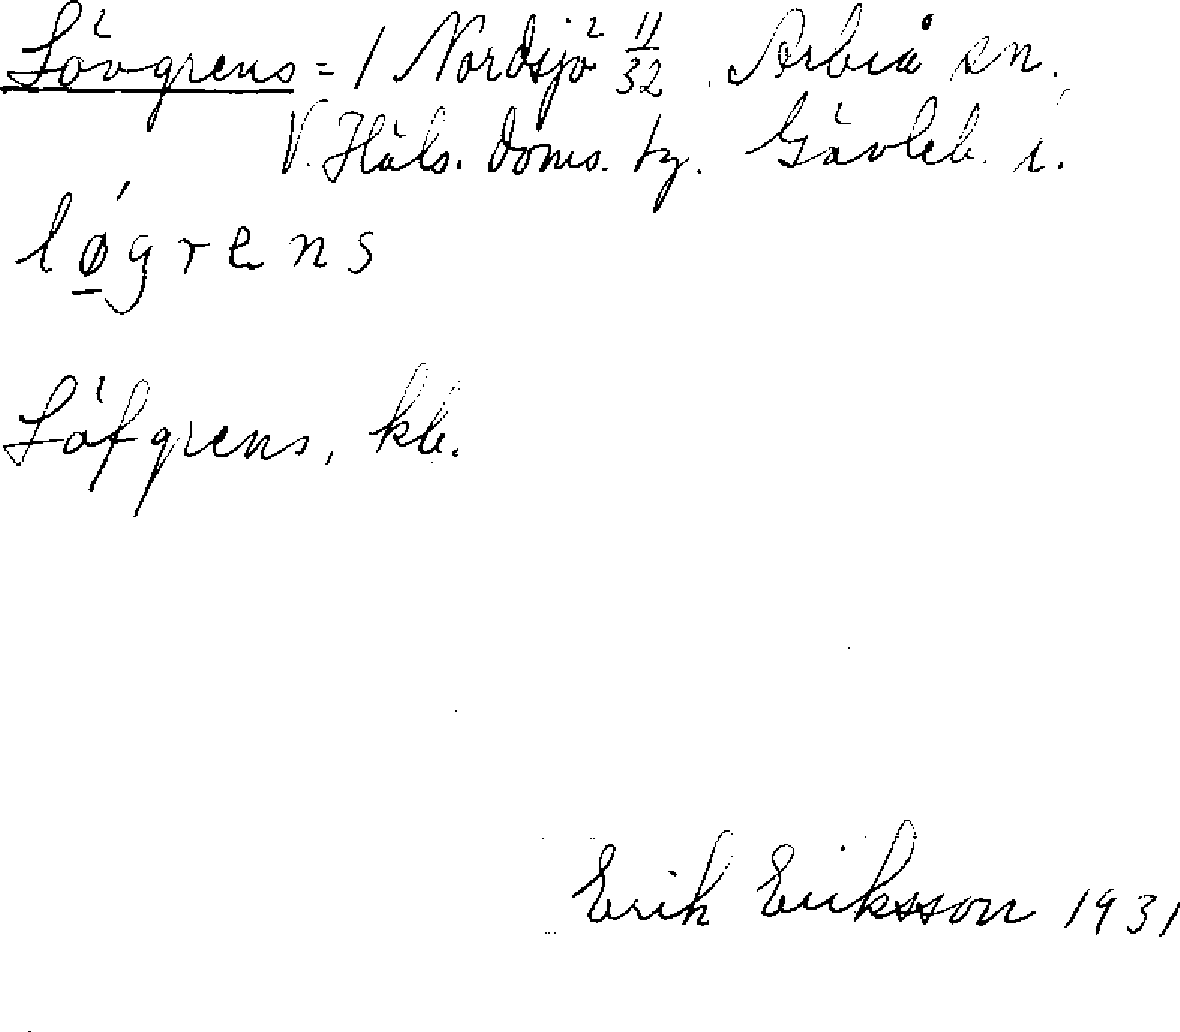 Lövgrens = 1 Nordsjö² 11/32 Arbrå sn.
V. Häls. doms. tg. Gävleb. l.
lǿgrens
Löfgrens, kb.
Erik Eriksson 1931